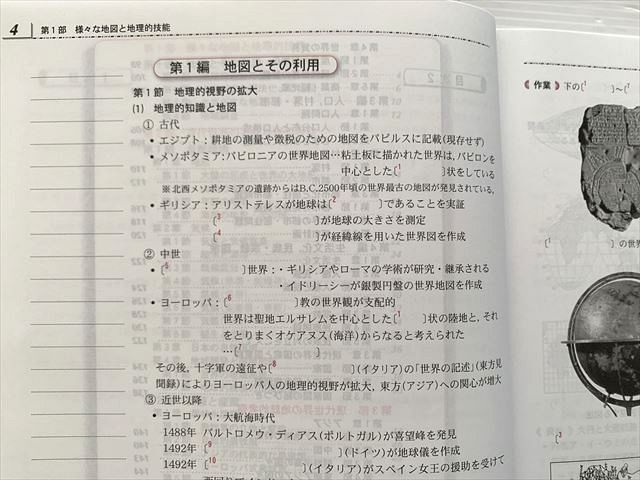 4 第1部 様々な地図と地理的技能
第1編 地図とその利用
第1節 地理的視野の拡大
(1) 地理的知識と地図
① 古代
• エジプト：耕地の測量や徴税のための地図をパピルスに記載(現存せず)
• メソポタミア：バビロニアの世界地図…粘土板に描かれた世界は，バビロンを
中心とした〔1 〕状をしている
※北西メソポタミアの遺跡からはB.C.2500年頃の世界最古の地図が発見されている。
• ギリシア：アリストテレスが地球は〔2 〕であることを実証
〔3 〕が地球の大きさを測定
〔4 〕が経緯線を用いた世界図を作成
② 中世
• 〔5 〕世界：・ギリシアやローマの学術が研究・継承される
・イドリーシーが銀製円盤の世界地図を作成
• ヨーロッパ：〔6 〕教の世界観が支配的
世界は聖地エルサレムを中心とした〔1 〕状の陸地と，それ
をとりまくオケアヌス(海洋)からなると考えられた
…〔7 〕
その後，十字軍の遠征や〔8 〕(イタリア)の「世界の記述」(東方見
聞録)によりヨーロッパ人の地理的視野が拡大，東方(アジア)への関心が増大
③ 近世以降
• ヨーロッパ：大航海時代
1488年 バルトロメウ・ディアス(ポルトガル)が喜望峰を発見
1492年〔9 〕(ドイツ)が地球儀を作成
1492年〔10 〕(イタリア)がスペイン女王の援助を受けて
作業 下の〔1 〕～〔
〔1 〕の世界
〔3